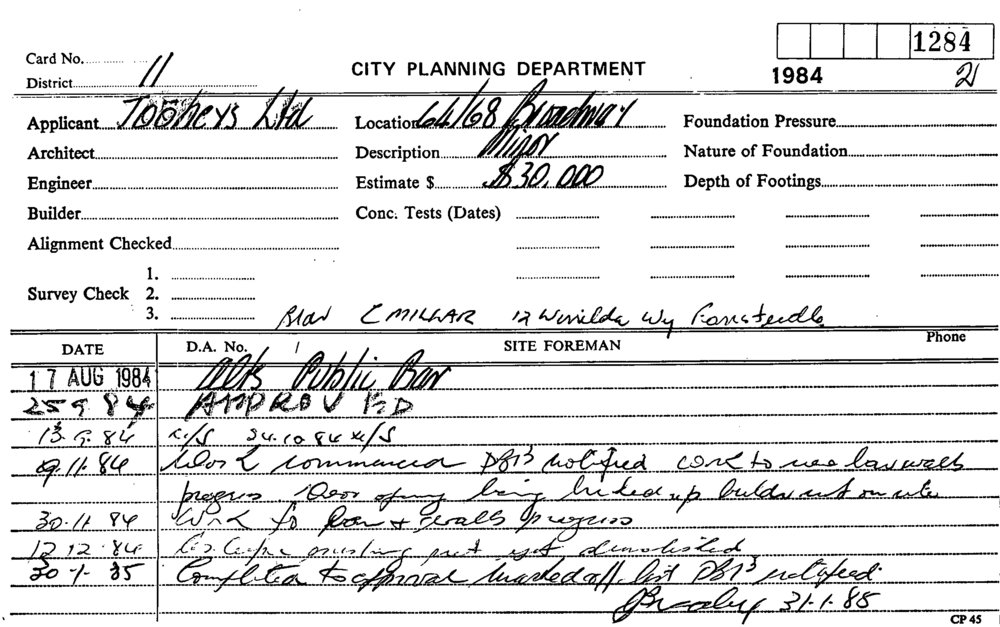 1284
Card No. 11
CITY PLANNING DEPARTMENT
1984 21
District
Applicant Tooheys Ltd Location 64/68 Broadway Foundation Pressure
Architect Description Minor Nature of Foundation
Engineer Estimate $ $30,000 Depth of Footings
Builder Conc. Tests (Dates)
Alignment Checked
1.
Survey Check 2.
3.
MILLAR 12
DATE D.A. No. SITE FOREMAN Phone
17 AUG 1984 Alts Public Bar
25 9 84 APPROVED
13.9.84 N/S 24.10.84 N/S
9.11.84 Work commenced notified work to new bar walls
progress Door being bricked up builder not on site
30.11.84 Work to bar & walls progress
12.12.84 not yet demolished
30-1-85 Completed to approval marked off list notified
31-1-85
CP 45